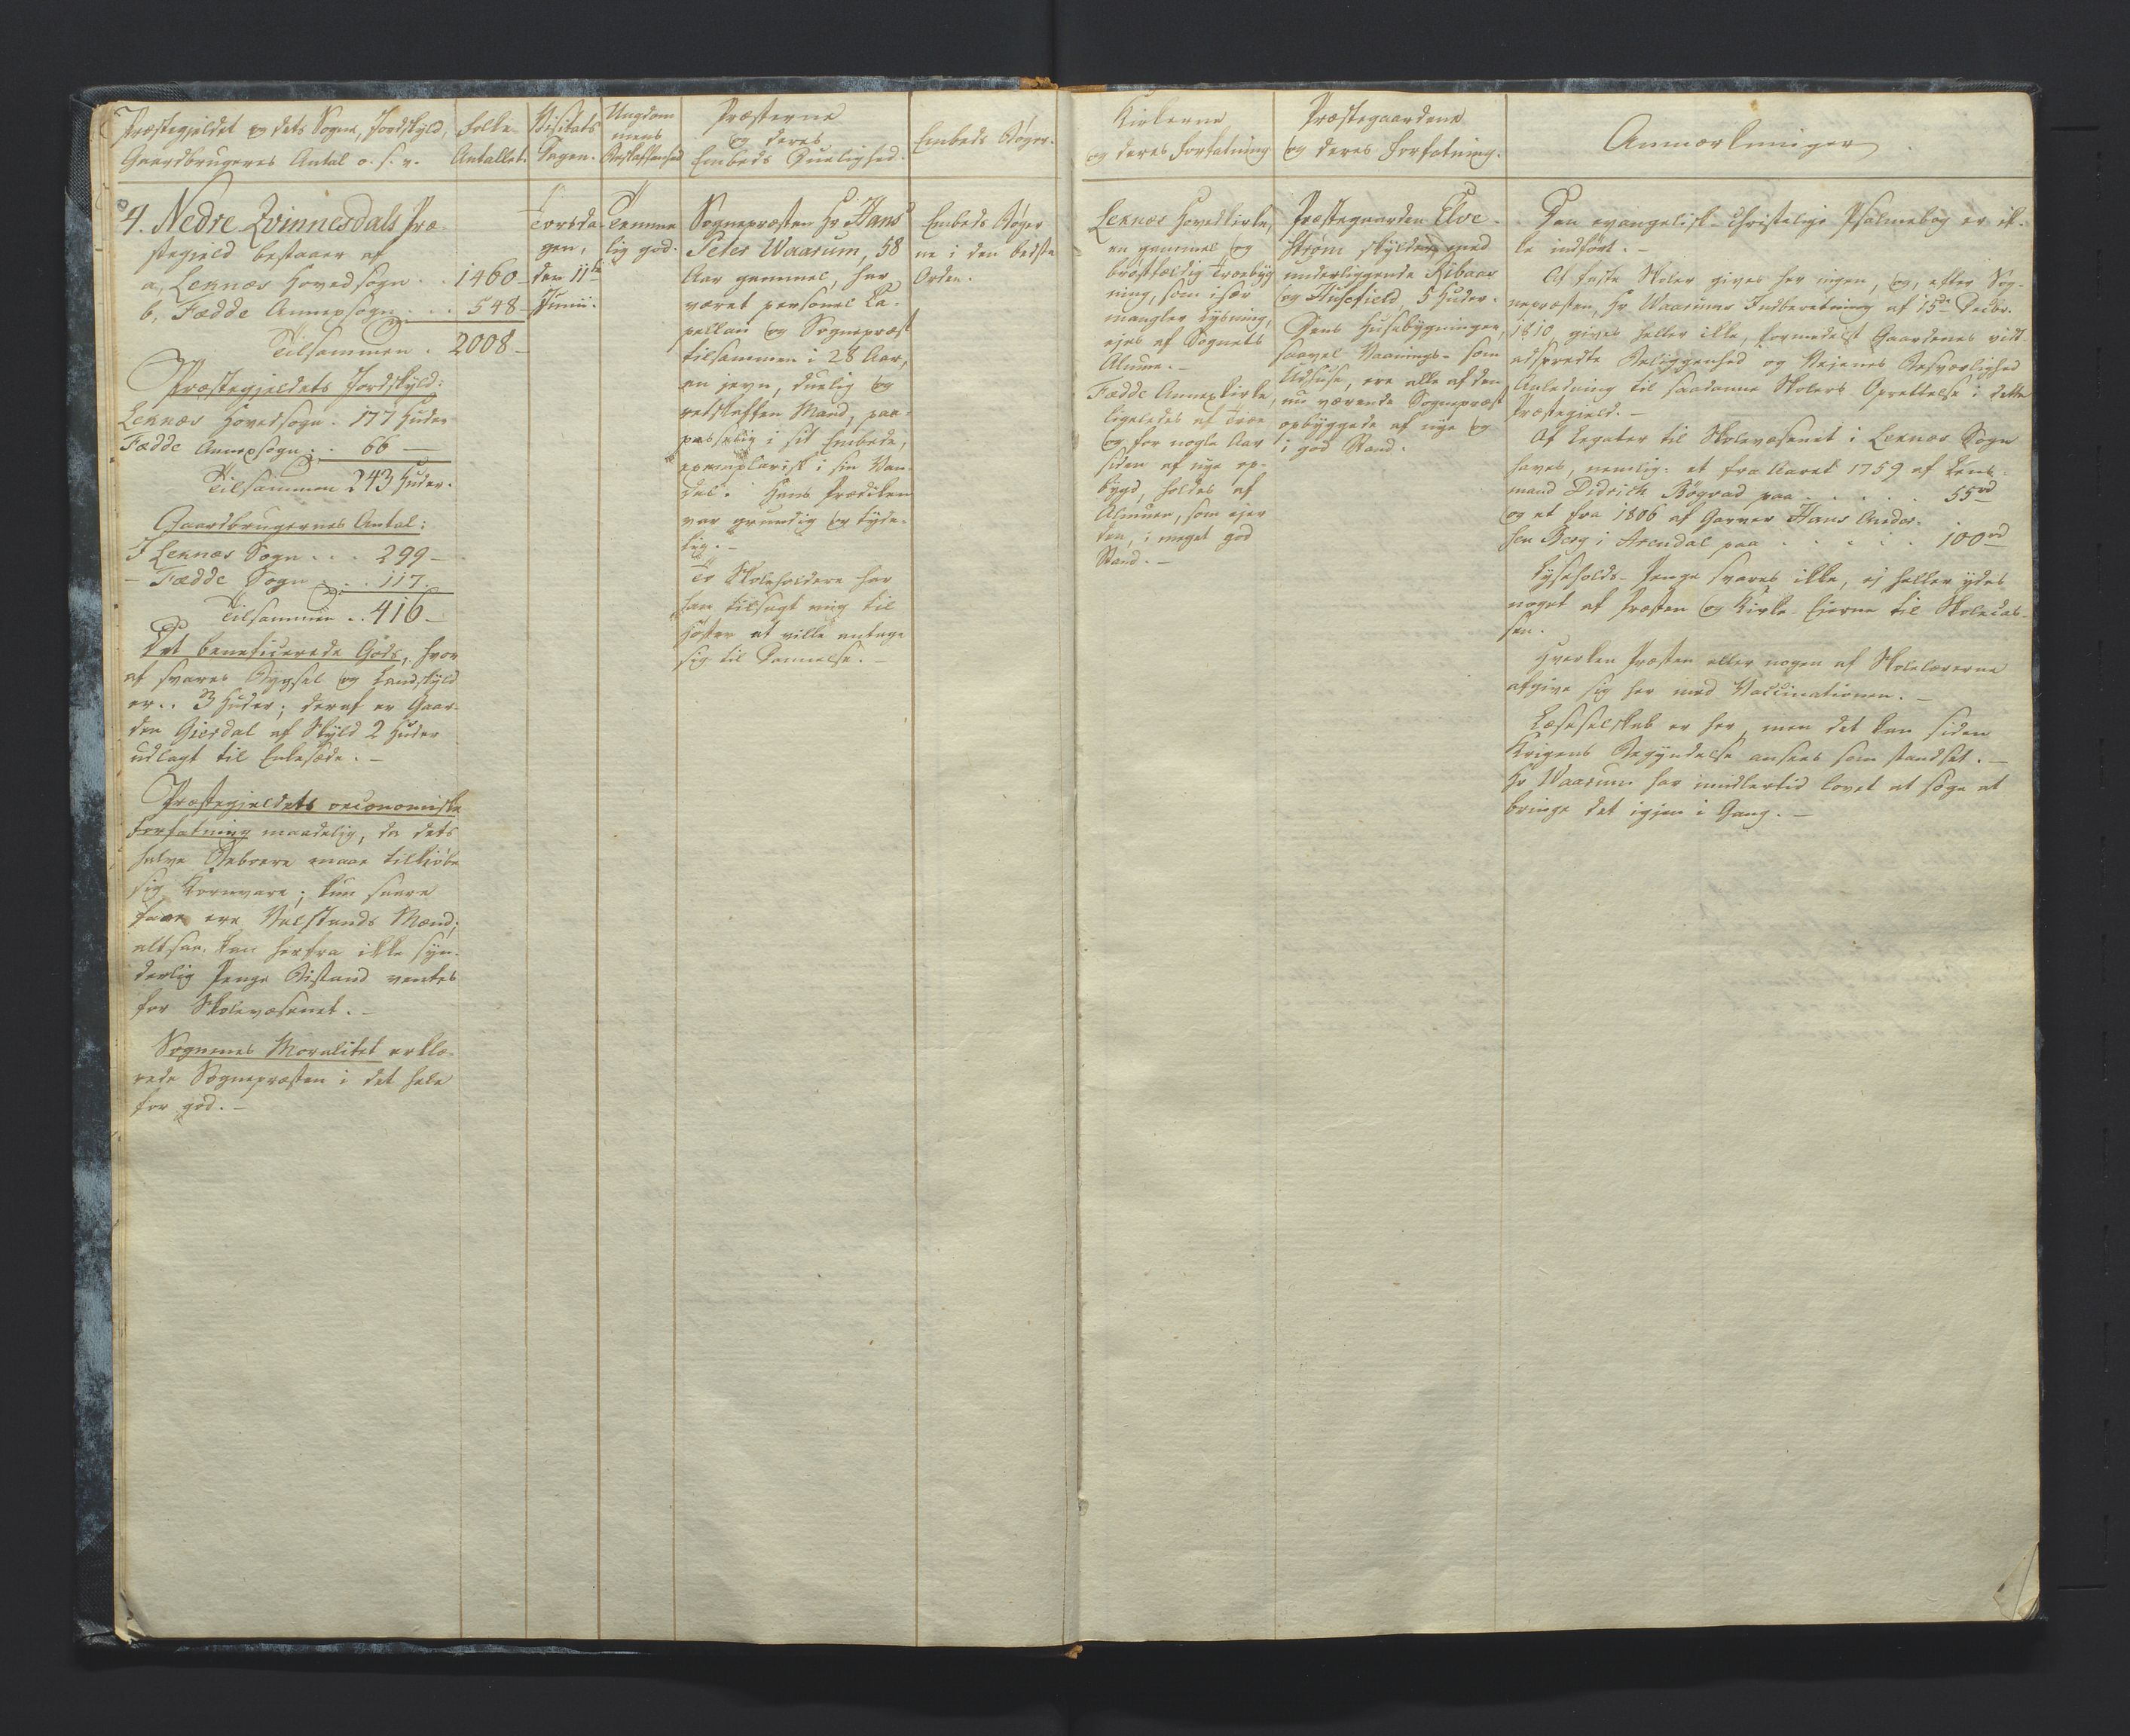 Præstegjeldet og dets Sogne, Jordskyld,
Gaardbrugernes Antal o. s. v.
Folke-
Antallet.
Visitats
Dagen.
Ungdom
mens
Beskaffenhed
Præsterne
og deres
Embeds Duelighed.
Embeds Bøger.
4. Nedre Qvinnesdals Præ-
stegield bestaaer af
a, Leknæs Hovedsogn . . 1460
b, Fædde Annexsogn . . . 548
Tilsammen . 2008
Præstegjeldets Jordskyld:
Leknæs Hovedsogn . 177 Huder
Fædde Annexsogn . . 66
Tilsammen 243 Huder.
Gaardbrugernes Antal:
I Leknæs Sogn . . . 299
- Fædde Sogn . . . 117.
Tilsammen . . 416
Det beneficerede Gods, hvor
af svares Bygsel og Landskyld
er . . 3 Huder; deraf er Gaar-
den Giersdal af Skyld 2 Huder
udlagt til Enkesæde. -
Præstegjeldets oeconomiske
Forfatning maadelig, da dets
halve Beboere maae tilkiøbe
sig Kornvare; kun saare
faae ere Velstands Mænd;
altsaa kan herfra ikke syn-
derlig Penge Bistand ventes
for Skolevæsenet. -
Sognenes Moralitet erklæ-
rede Sognepræsten i det hele
for god. -
Torsda
gen,
den 11te
Junii.
Temme
lig god.
Sognepræsten Hr Hans
Peter Waarum, 58
Aar gammel, har
været personel Ca-
pellan og Sognepræst
tilsammen i 28 Aar,
en jevn, duelig og
retskaffen Mand, paa-
passelig i sit Embede,
exemplarisk i sin Van-
del. Hans Prædiken
var grundig og tyde-
lig. -
To Skoleholdere har
han tilsagt mig til
Høsten at ville antage
sig til Dannelse. -
Embeds Bøger
ne i den bedste
Orden.
Kirkerne
og deres Forfatning
Præstegaardene
og deres Forfatning.
Anmærkninger.
Leknæs Hovedkirke,
en gammel og
brøstfældig Træbyg
ning, som især
mangler Lysning,
ejes af Sognets
Almue. -
Fædde Annexkirke,
ligeledes af Træe
og for nogle Aar
siden af nye op-
bygd, holdes af
Almuen, som ejer
den, i meget god
Stand. -
Præstegaarden Elve-
strøm skylder med
underliggende Ribaas
og Husefield, 5 Huder.
Dens Husebygninger,
saavel Vaanings- som
Udhuse, ere alle af den
nu værende Sognepræst
opbyggede af nye og
i god Stand.
Den evangelisk-christelige Psalmebog er ik-
ke indført. -
Af faste Skoler gives her ingen, og, efter Sog-
nepræsten, Hr Waarums Indberetning af 15de Decbr.
1810, gives heller ikke, formedelst Gaardenes vidt
adspredte Beliggenhed og Vejenes Besværlighed
Anledning til saadanne Skolers Oprettelse i dette
Præstegield. -
Af Legater til Skolevæsenet i Leknæs Sogn
haves, nemlig: et fra Aaret 1759 af Lens-
mand Didrich Bøgvad paa . . . . . 55 rd
og et fra 1806 af Garver Hans Ander-
sen Berg i Arendal paa . . . . . 100 rd
Lyseholds-Penge svares ikke, ej heller ydes
noget af Præsten og Kirke-Eierne til Skolecas-
sen.
Hverken Præsten eller nogen af Skolelærerne
afgive sig her med Vaccinationen. -
Læseselskab er her, men det kan siden
Krigens Begyndelse ansees som standset. -
Hr Waarum har imidlertid lovet at søge at
bringe det igjen i Gang. -